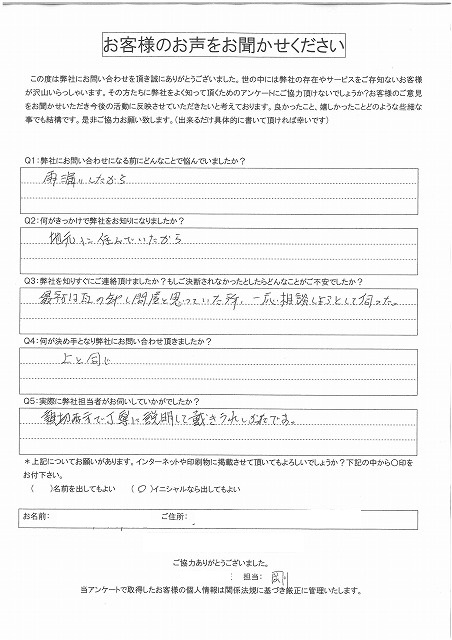 お客様のお声をお聞かせください
この度は弊社にお問い合わせを頂き誠にありがとうございます。世の中には弊社の存在やサービスをご存知ないお客様
が沢山いらっしゃいます。その方たちに弊社をよく知って頂くためのアンケートにご協力頂けないでしょうか?お客様のご意見
をお聞かせいただき今後の活動に反映させていただきたいと考えております。良かったこと、嬉しかったことどのような些細な
事でも結構です。是非ご協力お願い致します。(出来るだけ具体的に書いて頂ければ幸いです)
Q1:弊社にお問い合わせになる前にどんなことで悩んでいましたか?
雨漏りしたから
Q2:何がきっかけで弊社をお知りになりましたか?
地元に住んでいたから
Q3:弊社を知りすぐにご連絡頂けましたか?もしご決断されなかったとしたらどんなことがご不安でしたか?
最初は瓦の卸し問屋と思っていた所、一応相談しようとして伺った。
Q4:何が決め手となり弊社にお問い合わせ頂きましたか?
上と同じ
Q5:実際に弊社担当者がお伺いしていかがでしたか?
説明して戴き
*上記についてお願いがあります。インターネットや印刷物に掲載させて頂いてもよろしいでしょうか?下記の中から〇印を
お付下さい。
( )名前を出してもよい (〇)イニシャルなら出してもよい
お名前: ご住所:
ご協力ありがとうございました。
: 担当:
当アンケートで取得したお客様の個人情報は関係法規に基づき厳正に管理いたします。